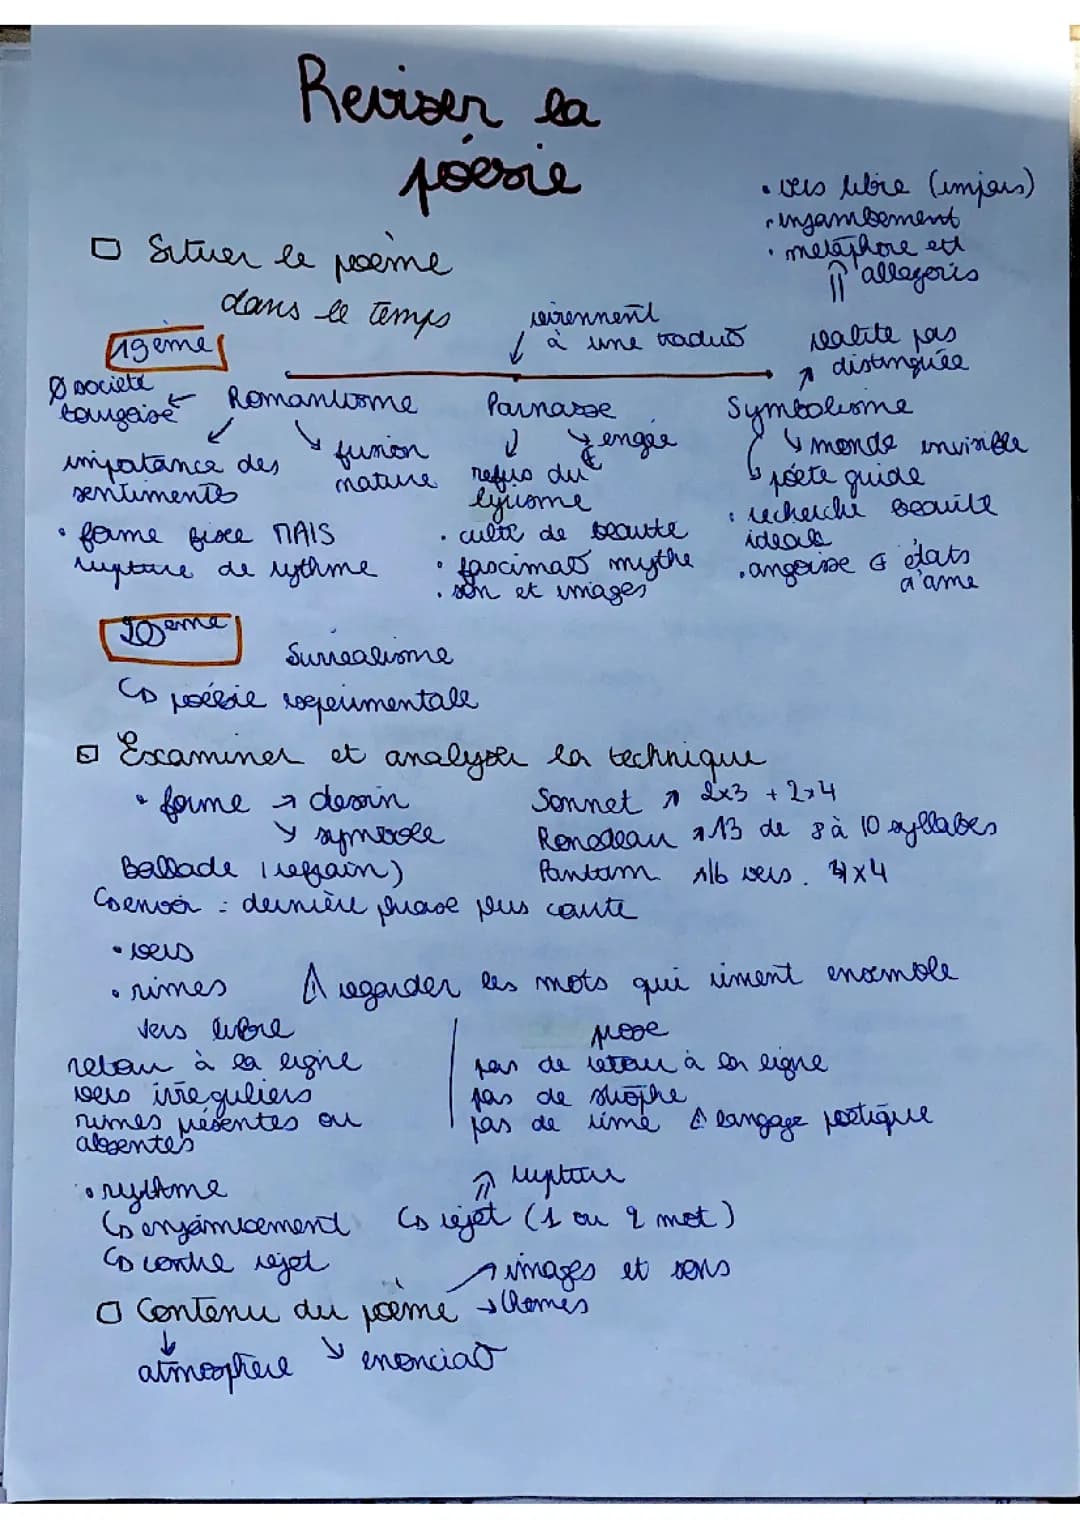 Reviser la
poésie
• vers libre (impairs)
• enjambement
• métaphore et
allegoris
□ Situer le poème
dans le temps
reviennent
à une trad
19ème
réalite pas
distinguée
Ø société
bourgeoise
Romantisme
Parnasse
Symbolisme
importance des
sentiments
fusion
nature
engée
refus du
lyrisme
monde invisible
poète guide
• forme fixe MAIS
rupture de rythme
• culte de beauté
• fascinat° mythe
• son et images
• recherche beauté
ideale
• angoisse états
d'ame
20ème
Surrealisme
poésie experimentale
Examiner et analyser la technique
• forme → dessin
symbole
Sonnet 2x3 + 2x4
Ronodeau 13 de 8 à 10 syllabes
Ballade (refrain)
Pantum 16 vers. 4x4
envoi : dernière phrase plus courte
• vers
• rimes
regarder les mots qui riment ensemble
vers libre
retour à la ligne
vers irréguliers
rimes présentes ou
absentes
prose
pas de retour à la ligne
pas de strophe
pas de rime langage poétique
• rythme
rupture
enjambement
rejet (1 ou 2 mot)
contre rejet
images et sens
□ Contenu du poème → thèmes
atmosphère
enonciat°